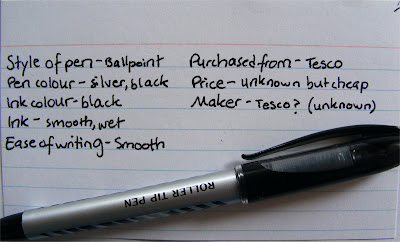 Style of pen - Ballpoint
Pen colour - silver, black
Ink colour - black
Ink - smooth, wet
Ease of writing - Smooth
Purchased from - Tesco
Price - unknown but cheap
Maker - Tesco? (unknown)
ROLLER TIP PEN